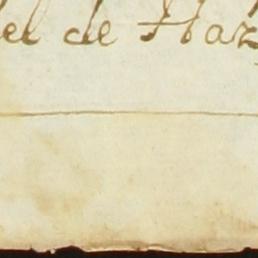 el de Haz